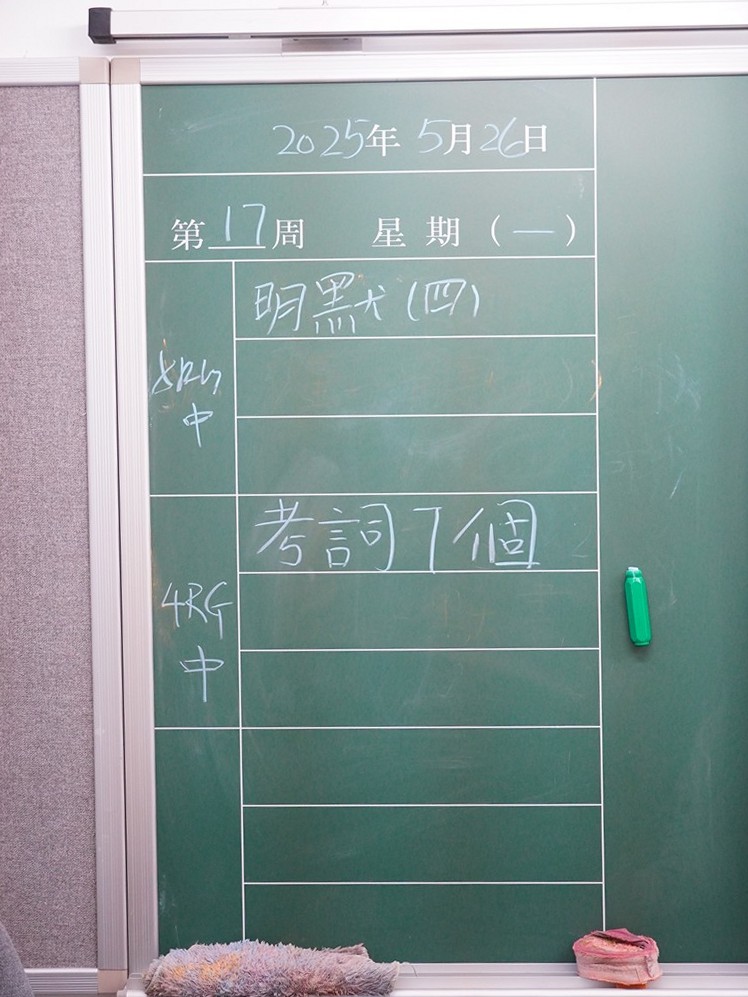 2025年 5月26日
第 17 周 星期(一)
明默(四)
中
考詞7個
4RG
中